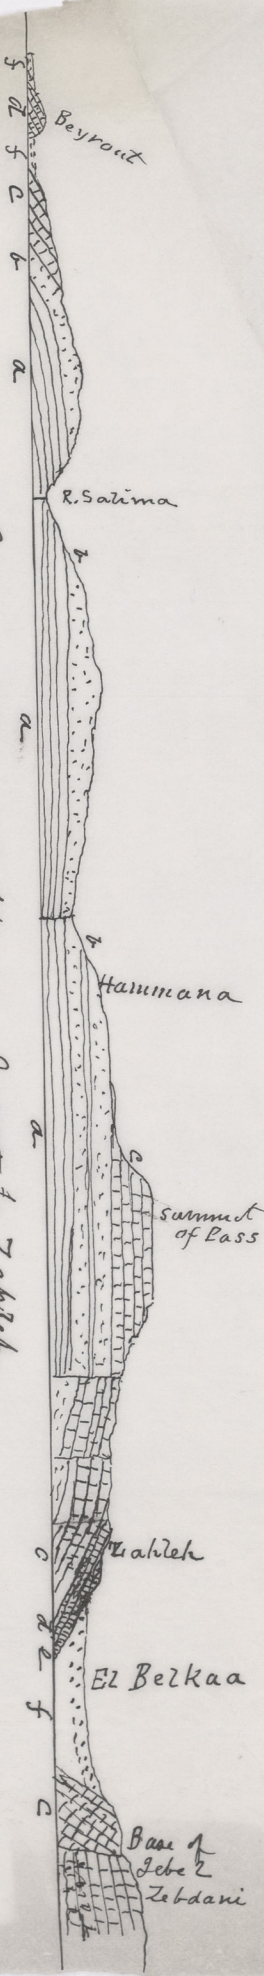 f
d
Beyrout
f
c
b
a
R. Salima
b
a
b
Hammana
a
c
Summit
of Pass
Zahleh
c
d
e
El Belkaa
f
c
Base of
Jebel
Zebdani